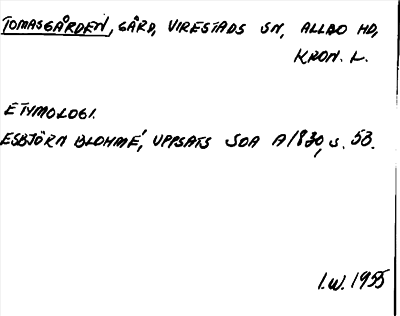 TOMASGÅRDEN, GÅRD, VIRESTADS SN, ALLBO HD,
KRON. L.
ETYMOLOGI.
ESBJÖRN BLOHMÉ, UPPSATS SOA A1830, S. 53.
I.W. 1955